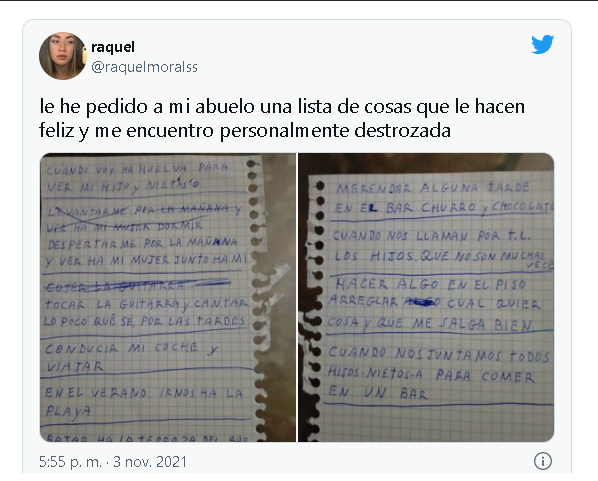 raquel
@raquelmoralss
le he pedido a mi abuelo una lista de cosas que le hacen
feliz y me encuentro personalmente destrozada
CUANDO VOY HA HUELVA PARA
VER MI HIJO y NIETASTO
LEVANTARME POR LA MAÑANA y
VER HA MI MUJER DORMIR
DESPERTARME POR LA MAÑANA
Y VER HA MI MUJER JUNTO HAMI
COJER LA GUITARRA
TOCAR LA GUITARRA y CANTAR
LO POCO QUÉ SÉ, POR LAS TARDES
CONDUCIR MI COCHE y
VIAJAR
EN EL VERANO IRNOS HA LA
PLAYA
HA LA TERRAZA DEL
MERENDAR ALGUNA TARDE
EN EL BAR CHURRO y CHOCOLATE
CUANDO NOS LLAMAN POR T.L.
LOS HIJOS, QUE NO SON MUCHAS
VECES
HACER ALGO EN EL PISO
ARREGLAR CUAL QUIER
COSA y QUE ME SALGA BIEN
CUANDO NOS JUNTAMOS TODOS
HIJOS-NIETOS-A PARA COMER
EN UN BAR
5:55 p. m. · 3 nov. 2021